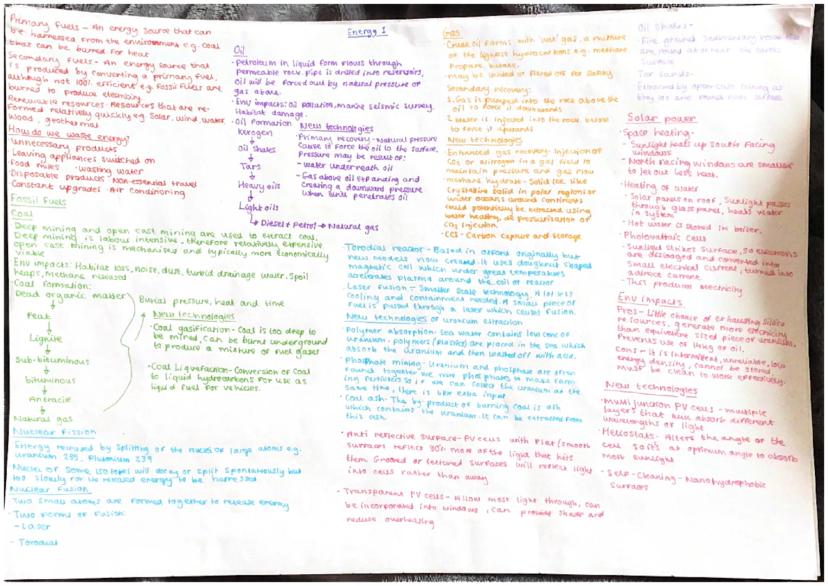 Energy 1
Primary Fuels - An energy source that can
be harnessed from the environment e.g. coal
that can be burned for heat
Secondary Fuels - An energy source that
is produced by converting a primary fuel,
although not 100% efficient e.g. Fossil Fuels are
burned to produce electricity
Renewable resources - Resources that are re-
formed relatively quickly e.g. Solar, wind, water
wood, geothermal
How do we waste energy?
Unnecessary products
Leaving appliances switched on
Food miles · Washing water
Disposable products · Non-essential travel
Constant upgrades · Air conditioning
Fossil Fuels
Coal
Deep mining and open cast mining are used to extract coal.
Deep mining is labour intensive, therefore relatively expensive
open cast mining is mechanised and typically more economically
viable
Env impacts: Habitat loss, noise, dust, turbid drainage water, spoil
heaps, methane released
Coal formation:
Dead organic matter
Peat
Lignite
Sub-bituminous
bituminous
Antracie
Natural gas
Burial pressure, heat and time
New technologies
· Coal gasification - Coal is too deep to
be mined, can be burned underground
to produce a mixture of fuel gases
· Coal Liquefaction - Conversion of coal
to liquid hydrocarbons for use as
liquid fuel for vehicles.
Nuclear Fission
Energy released by splitting of the nuclei of large atoms e.g.
uranium 235, Plutonium 239
Nuclei of some isotopes will decay or split spontaneously but
too slowly for the released energy to be harnessed
Nuclear Fusion
- Two small atoms are formed together to release energy
- Two forms of fusion:
- Laser
- Torodial
Oil
· Petroleum in liquid form flows through
permeable rock. Pipe is drilled into reservoirs,
oil will be forced out by natural pressure or
gas above.
· Env impacts: Oil pollution, marine seismic survey,
Habitat damage.
· Oil Formation
Kerogen
Oil Shales
Tars
Heavy oils
Light oils
Diesel + Petrol → Natural gas
New technologies
· Primary recovery - Natural pressure
cause it force the oil to the surface.
Pressure may be result of:
- Water underneath oil
- Gas above oil expanding and
creating a downward pressure
when drills penetrates oil
Torodial reactor - Based in oxford originally but
new models now created. It uses doughnut shaped
magnetic cell which under great temperatures
accelerates plasma around the coil of reactor
Laser fusion - Smaller scale technology. A lot less
cooling and containment needed. A small piece of
fuel is passed through a laser which causes fusion.
New technologies of uranium extraction
· Polymer absorption - Sea water contains low conc of
uranium. polymers (plastics) are placed in the sea which
absorb the uranium and then washed off with acid.
· Phosphate mining - Uranium and phosphate are often
found together. We mine phosphate to make farm-
ing fertilisers so if we can collect the uranium at the
same time, there is like extra input
· Coal ash - The by product of burning coal is ash
which contains the uranium. It can be extracted from
this ash.
· Anti reflective surface - PV cells with flat/smooth
surfaces reflect 30% more of the light that hits
them. Grooved or textured surfaces will reflect light
into cells rather than away
· Transparent PV cells - Allow most light through, can
be incorporated into windows, can provide shade and
reduce overheating
Gas
· Crude oil forms with 'wet' gas, a mixture
of the lightest hydrocarbons e.g. methane
Propane, butane.
may be vented or flared off for safety
Secondary recovery:
1. Gas is pumped into the rock above the
oil to force it downwards
2. Water is injected into the rock below
to force it upwards
New technologies
· Enhanced gas recovery - Injection of
CO2 or nitrogen in a gas field to
maintain pressure and gas flow
methane hydrate - Solid ice like
crystaline solid in polar regions or
under oceans around continents
could potentially be extracted using
water heating, de pressurisation or
CO2 injection
· CCS - Carbon capture and storage
Oil Shales -
Fine grained sedimentary rocks that
are found at or near the earths
surface
Tar sands -
Extracted by open cast mining as
they too are found near surface
Solar power
· Space heating -
· Sunlight heats up south facing
windows
· North facing windows are smaller
to let out less heat.
· Heating of water
· Solar panels on roof, sunlight passes
through glass panel, heats water
in system
· Hot water is stored in boiler.
· Photovoltaic cells
· Sunlight strikes surface, so electrons
are dislodged and converted into
small electrical current, turned into
a direct current
· This produces electricity
Env impacts
Pros - Little chance of exhausting silica
resources, generate more electricity
than equivalent sized piece of uranium,
Prevents use of ring oil.
cons - It is intermittent, unreliable, low
energy density, cannot be stored
must be clean to work effectively.
New technologies
· Multi junction PV cells - multiple
layers that each absorb different
wavelengths of light
· Heliostats - Alters the angle of the
cell so it's at optimum angle to absorb
most sunlight
· Self-cleaning - Nanohydrophobic
surfaces